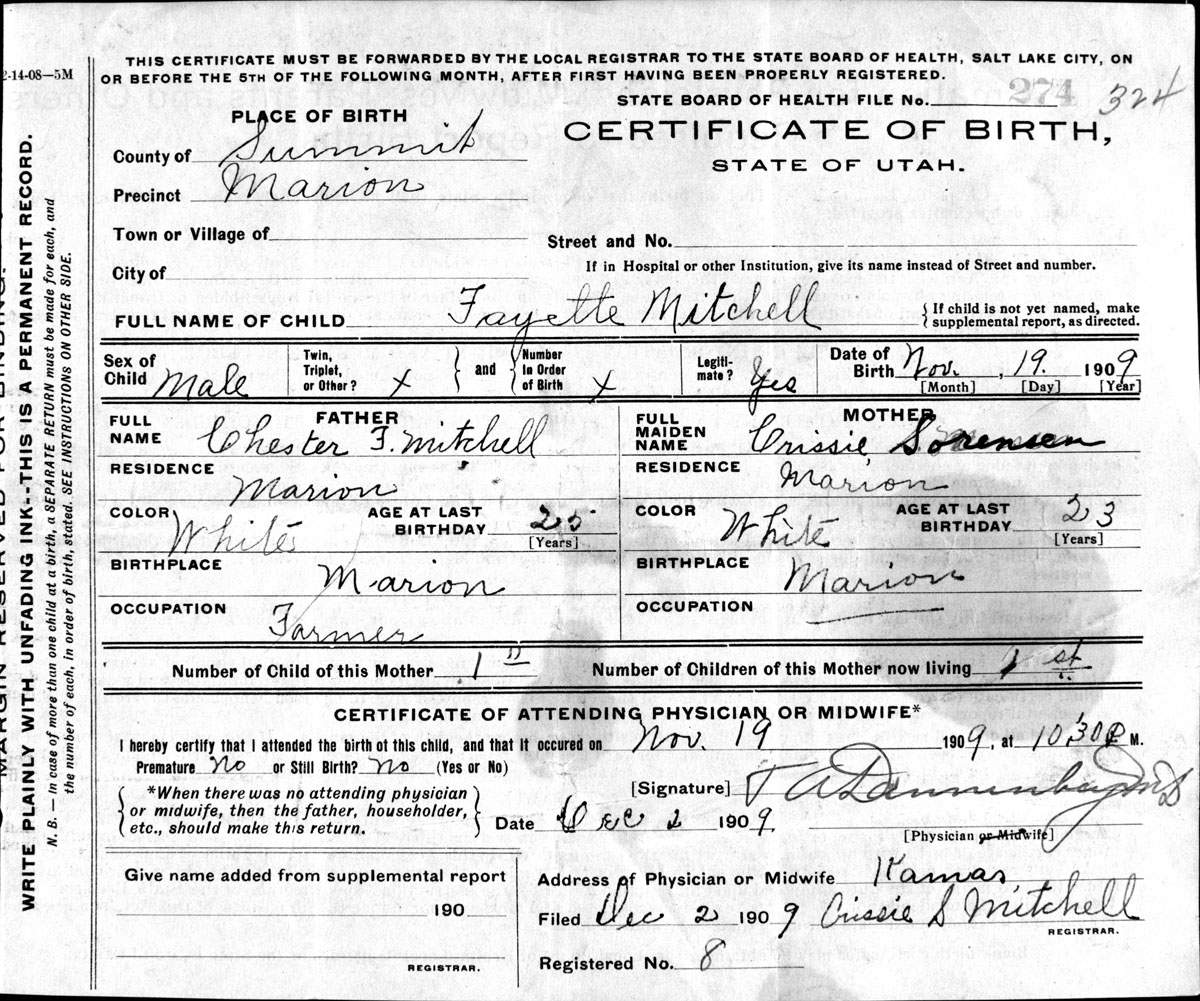 2-14-08—5M
THIS CERTIFICATE MUST BE FORWARDED BY THE LOCAL REGISTRAR TO THE STATE BOARD OF HEALTH, SALT LAKE CITY, ON
OR BEFORE THE 5TH OF THE FOLLOWING MONTH, AFTER FIRST HAVING BEEN PROPERLY REGISTERED.
STATE BOARD OF HEALTH FILE No. 274 324
PLACE OF BIRTH
CERTIFICATE OF BIRTH,
STATE OF UTAH.
County of Summit
Precinct Marion
Town or Village of
Street and No.
City of
If in Hospital or other Institution, give its name instead of Street and number.
FULL NAME OF CHILD Fayette Mitchell
{If child is not yet named, make
supplemental report, as directed.
Sex of Child Male
Twin, Triplet, or Other? x } and { Number In Order of Birth x
Legiti-mate? Yes
Date of Birth Nov. , 19. 1909
[Month] [Day] [Year]
FATHER
FULL NAME Chester F. Mitchell
MOTHER
FULL MAIDEN NAME Crissie Sorensen
RESIDENCE Marion
RESIDENCE Marion
COLOR White AGE AT LAST BIRTHDAY 25 [Years]
COLOR White AGE AT LAST BIRTHDAY 23 [Years]
BIRTHPLACE Marion
BIRTHPLACE Marion
OCCUPATION Farmer
OCCUPATION
Number of Child of this Mother 1
Number of Children of this Mother now living 1 st
CERTIFICATE OF ATTENDING PHYSICIAN OR MIDWIFE*
I hereby certify that I attended the birth of this child, and that it occured on Nov. 19 1909, at 10:30 P M.
Premature no or Still Birth? no (Yes or No)
{*When there was no attending physician
or midwife, then the father, householder,
etc., should make this return.}
[Signature] T A Dannenberg MD
Date Dec 2 1909.
[Physician or Midwife]
Give name added from supplemental report
190
REGISTRAR.
Address of Physician or Midwife Kamas,
Filed Dec 2 1909 Crissie S Mitchell
REGISTRAR.
Registered No. 8
WRITE PLAINLY WITH UNFADING INK--THIS IS A PERMANENT RECORD.
N. B. — In case of more than one child at a birth, a SEPARATE RETURN must be made for each, and
the number of each, in order of birth, stated. SEE INSTRUCTIONS ON OTHER SIDE.